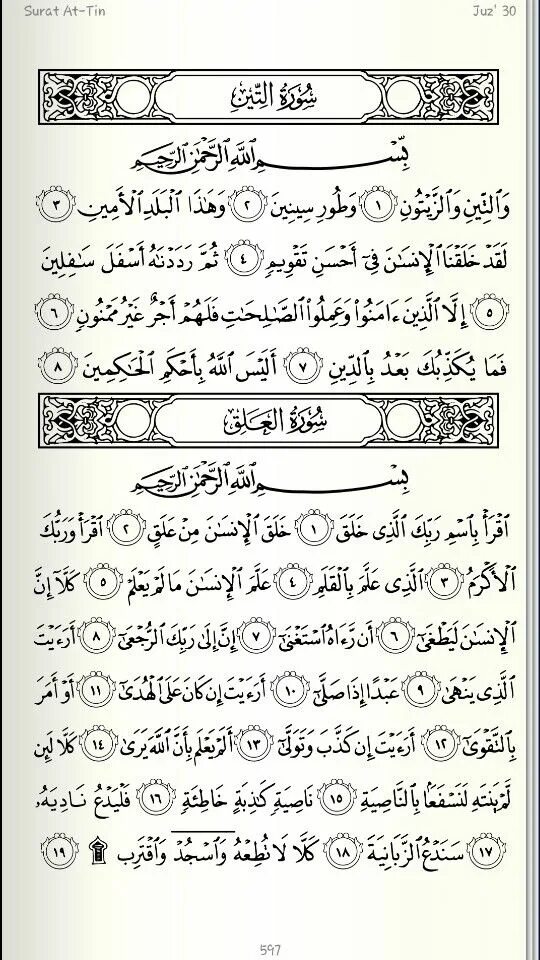 Surat At-Tin Juz' 30
سُورَةُ التِّينِ
بِسْمِ اللَّهِ الرَّحْمَٰنِ الرَّحِيمِ
وَٱلتِّينِ وَٱلزَّيْتُونِ ١ وَطُورِ سِينِينَ ٢ وَهَٰذَا ٱلْبَلَدِ ٱلْأَمِينِ ٣
لَقَدْ خَلَقْنَا ٱلْإِنسَٰنَ فِىٓ أَحْسَنِ تَقْوِيمٍ ٤ ثُمَّ رَدَدْنَٰهُ أَسْفَلَ سَٰفِلِينَ
٥ إِلَّا ٱلَّذِينَ ءَامَنُوا۟ وَعَمِلُوا۟ ٱلصَّٰلِحَٰتِ فَلَهُمْ أَجْرٌ غَيْرُ مَمْنُونٍ ٦
فَمَا يُكَذِّبُكَ بَعْدُ بِٱلدِّينِ ٧ أَلَيْسَ ٱللَّهُ بِأَحْكَمِ ٱلْحَٰكِمِينَ ٨
سُورَةُ العَلَقِ
بِسْمِ اللَّهِ الرَّحْمَٰنِ الرَّحِيمِ
ٱقْرَأْ بِٱسْمِ رَبِّكَ ٱلَّذِى خَلَقَ ١ خَلَقَ ٱلْإِنسَٰنَ مِنْ عَلَقٍ ٢ ٱقْرَأْ وَرَبُّكَ
ٱلْأَكْرَمُ ٣ ٱلَّذِى عَلَّمَ بِٱلْقَلَمِ ٤ عَلَّمَ ٱلْإِنسَٰنَ مَا لَمْ يَعْلَمْ ٥ كَلَّآ إِنَّ
ٱلْإِنسَٰنَ لَيَطْغَىٰٓ ٦ أَن رَّءَاهُ ٱسْتَغْنَىٰٓ ٧ إِنَّ إِلَىٰ رَبِّكَ ٱلرُّجْعَىٰٓ ٨ أَرَءَيْتَ
ٱلَّذِى يَنْهَىٰ ٩ عَبْدًا إِذَا صَلَّىٰٓ ١٠ أَرَءَيْتَ إِن كَانَ عَلَى ٱلْهُدَىٰٓ ١١ أَوْ أَمَرَ
بِٱلتَّقْوَىٰٓ ١٢ أَرَءَيْتَ إِن كَذَّبَ وَتَوَلَّىٰٓ ١٣ أَلَمْ يَعْلَم بِأَنَّ ٱللَّهَ يَرَىٰ ١٤ كَلَّا لَئِن
لَّمْ يَنتَهِ لَنَسْفَعًۢا بِٱلنَّاصِيَةِ ١٥ نَاصِيَةٍ كَٰذِبَةٍ خَاطِئَةٍ ١٦ فَلْيَدْعُ نَادِيَهُۥ
١٧ سَنَدْعُ ٱلزَّبَانِيَةَ ١٨ كَلَّا لَا تُطِعْهُ وَٱسْجُدْ وَٱقْتَرِب ۩ ١٩
597